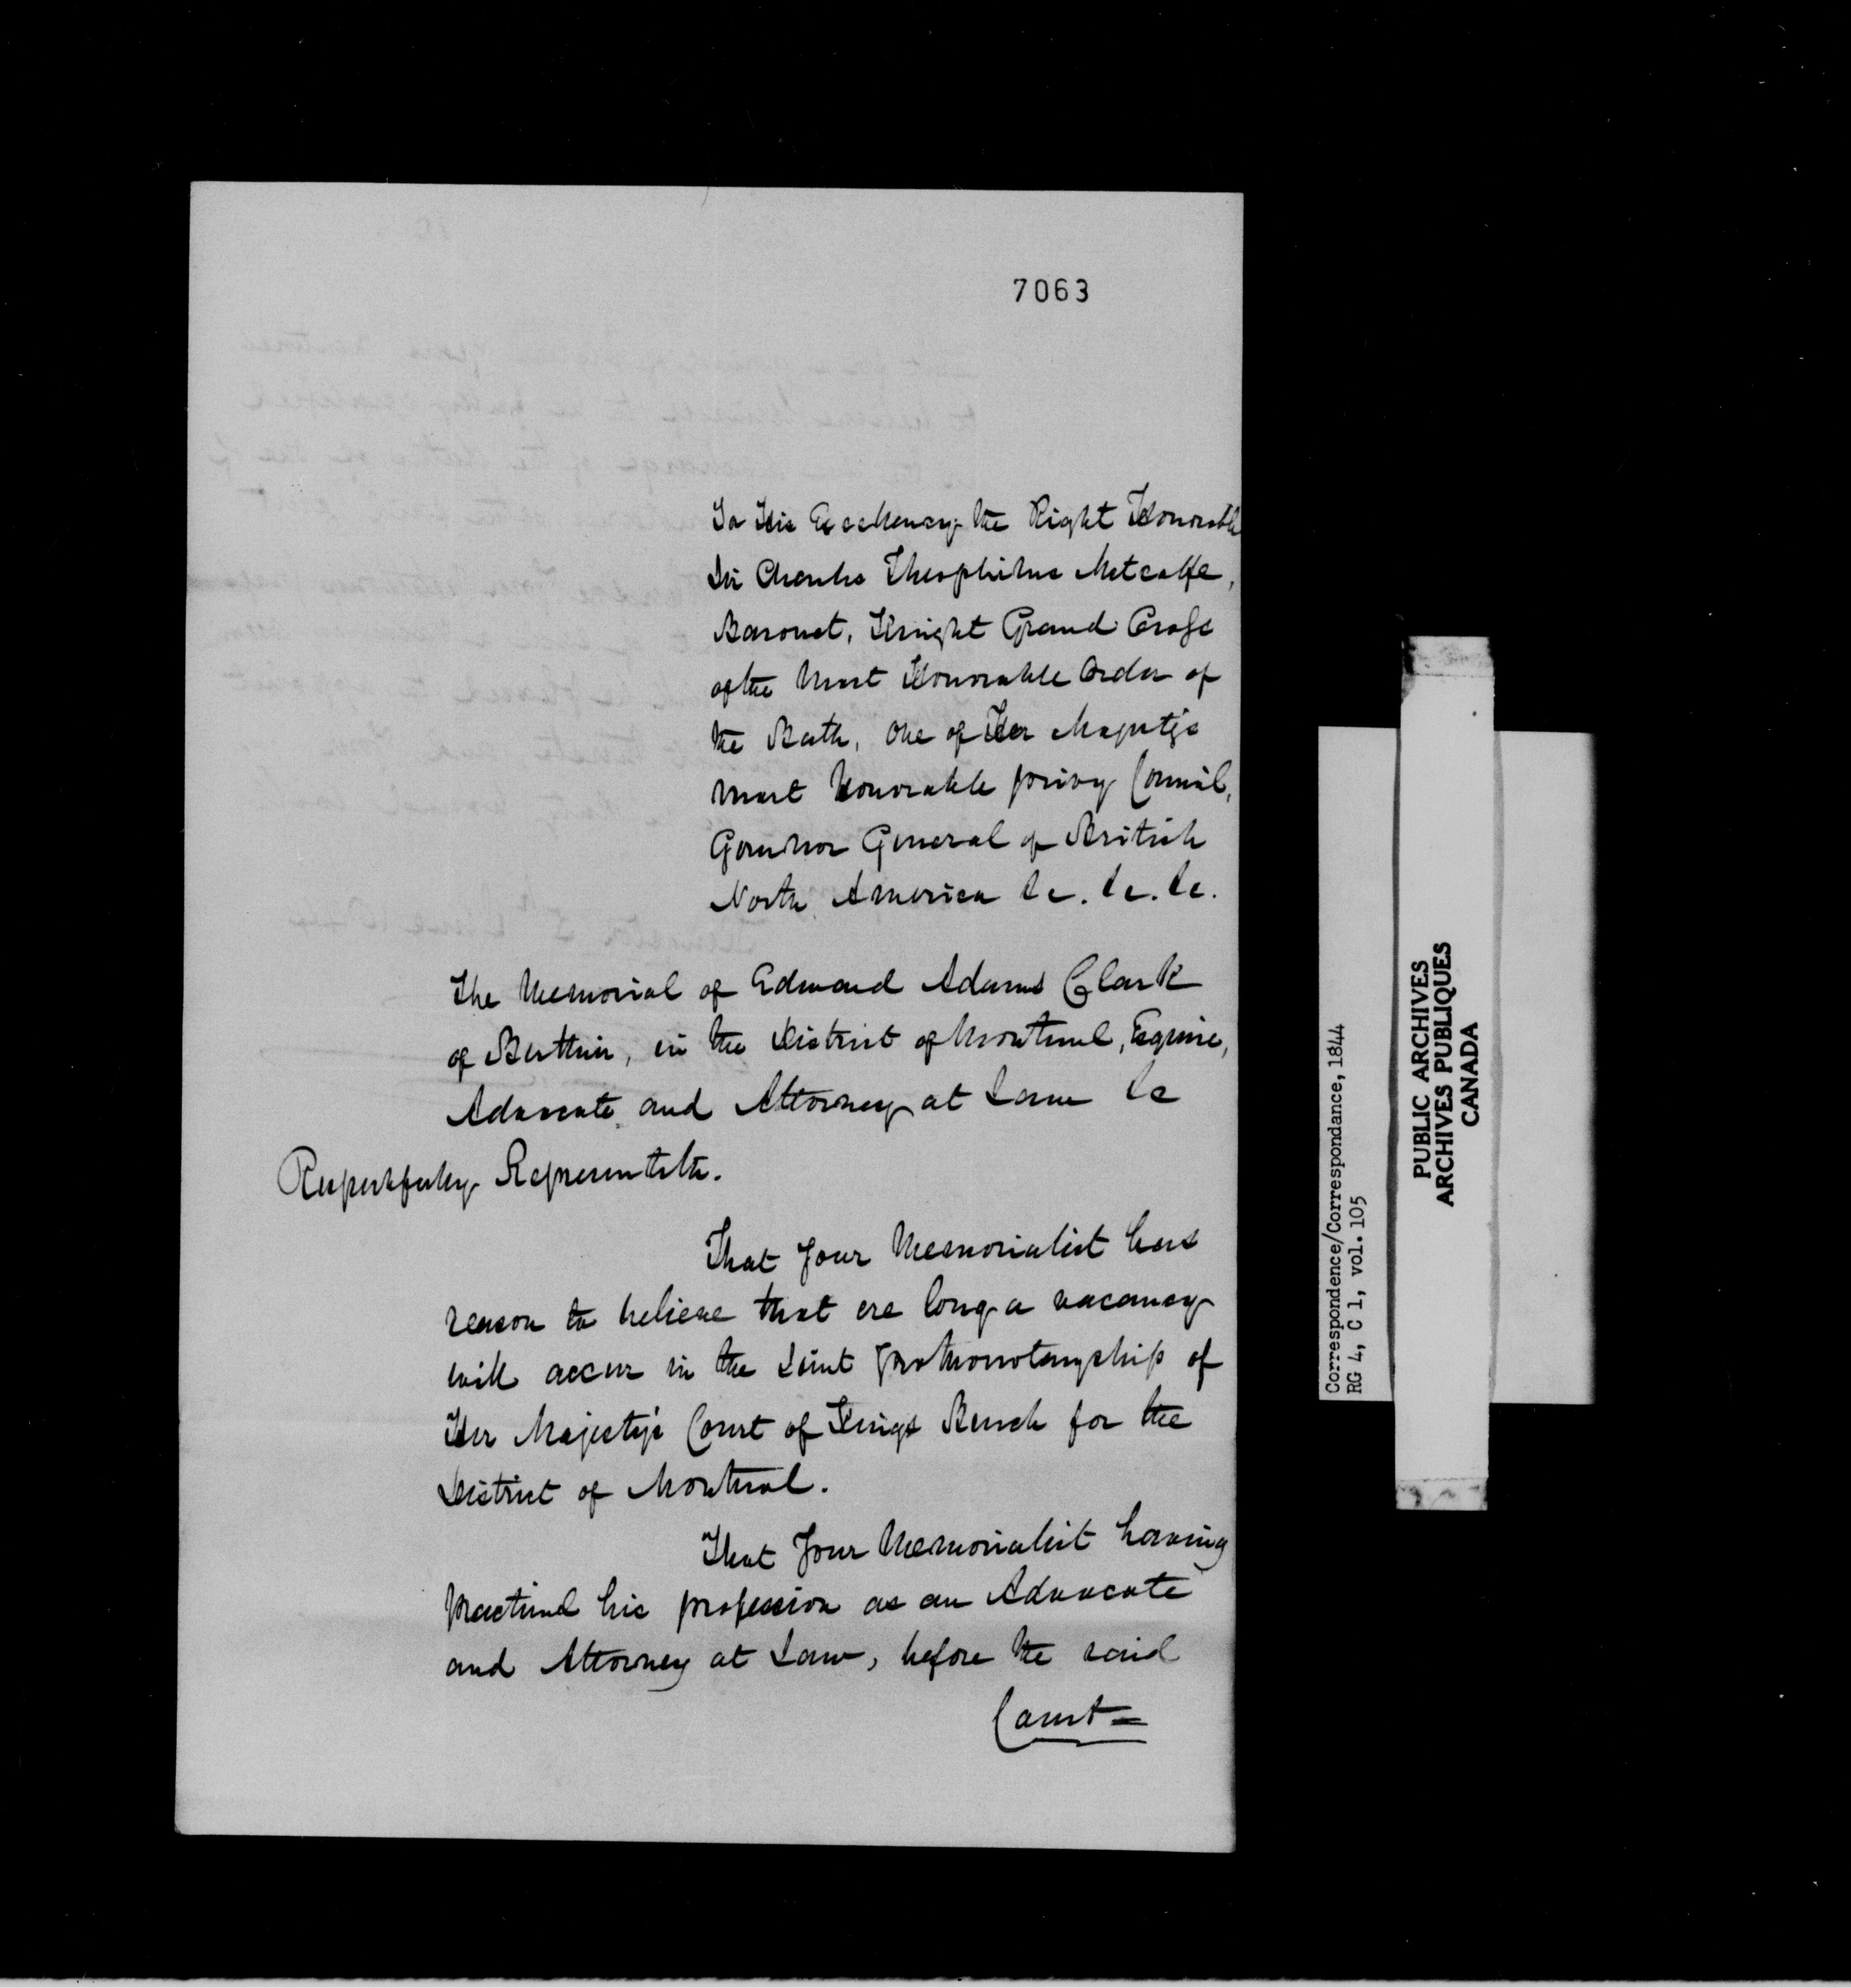 7063
To His Excellency the Right Honorable
Sir Charles Theophilus Metcalfe,
Baronet, Knight Grand Cross
of the Most Honorable Order of
the Bath, One of Her Majesty's
most Honorable privy Council,
Governor General of British
North America &c. &c. &c.
The Memorial of Edward Adams Clark
of Berthier, in the District of Montreal, Esquire,
Advocate and Attorney at Law &c
Respectfully Representeth.
That Your Memorialist has
reason to believe that ere long a vacancy
will occur in the Joint Prothonotaryship of
Her Majesty's Court of Kings Bench for the
District of Montreal.
That Your Memorialist having
practised his profession as an Advocate
and Attorney at Law, before the said
Court =
Correspondence/Correspondance, 1844
RG 4, C 1, vol. 105
PUBLIC ARCHIVES
ARCHIVES PUBLIQUES
CANADA